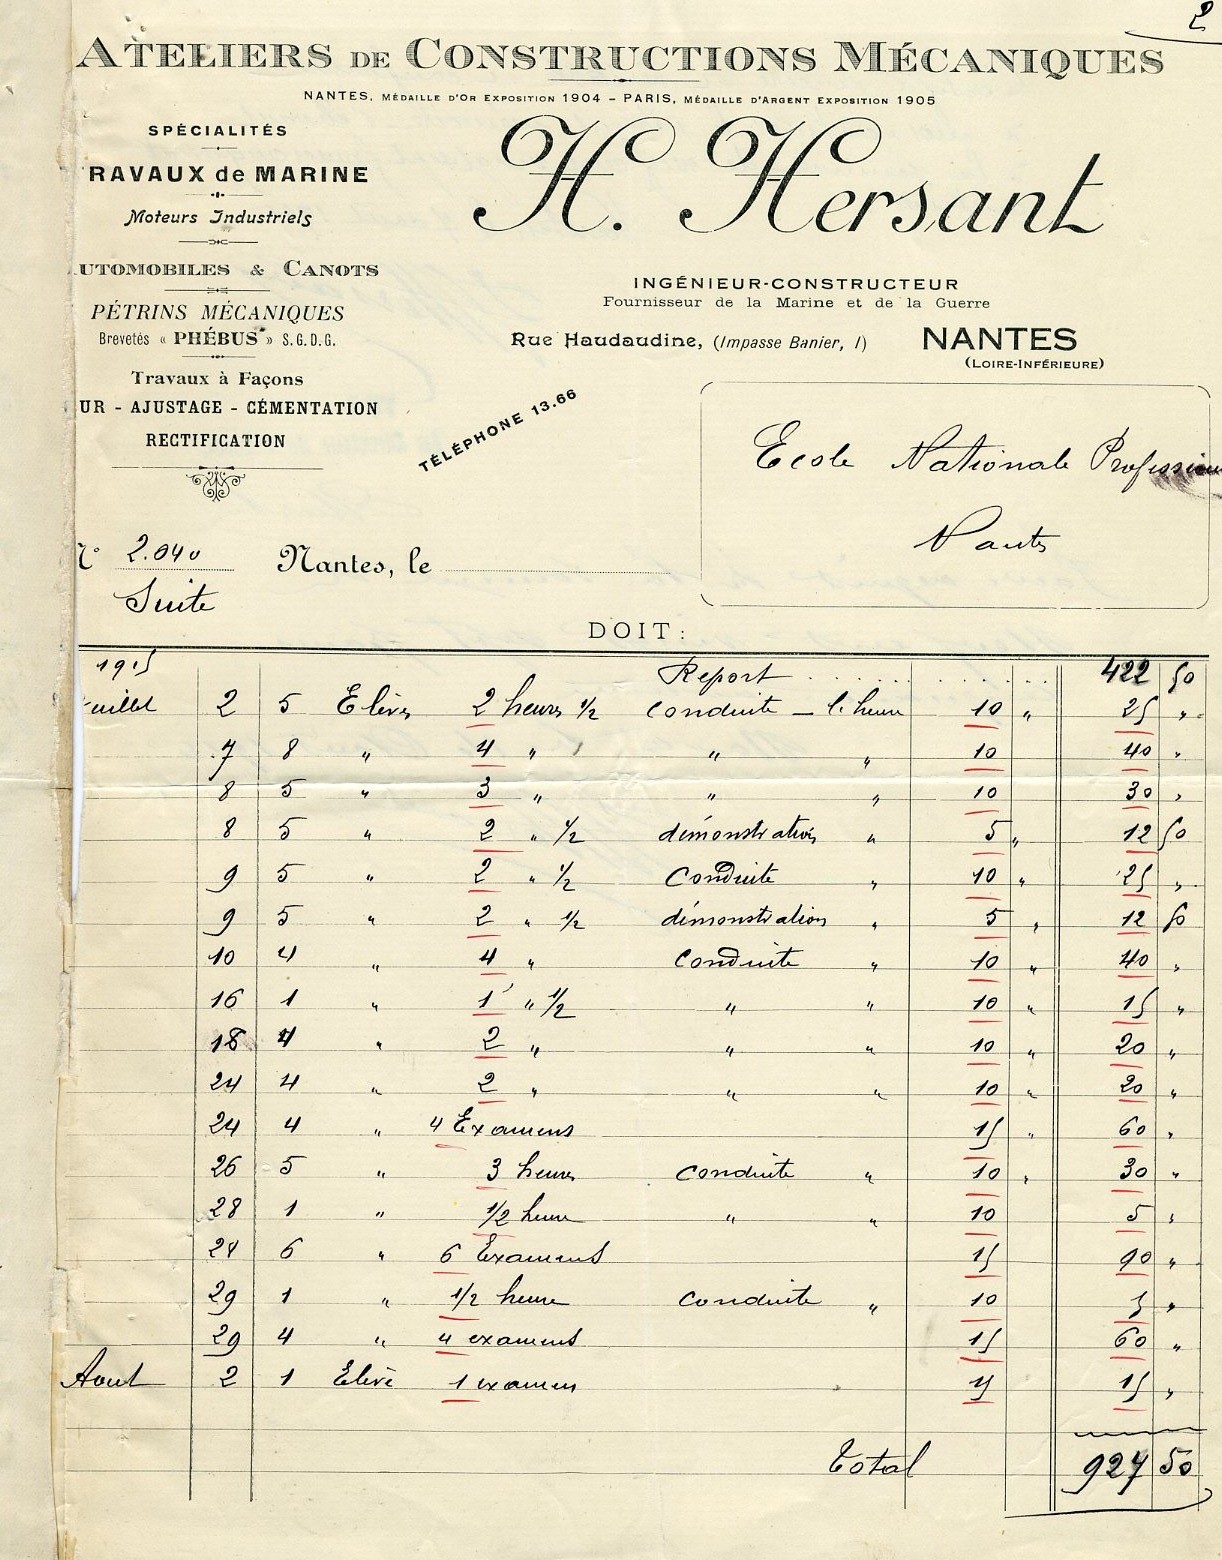 2
ATELIERS DE CONSTRUCTIONS MÉCANIQUES
NANTES, MÉDAILLE D'OR EXPOSITION 1904 – PARIS, MÉDAILLE D'ARGENT EXPOSITION 1905
SPÉCIALITÉS
RAVAUX de MARINE
Moteurs Industriels
UTOMOBILES & CANOTS
PÉTRINS MÉCANIQUES
Brevetés « PHÉBUS » S.G.D.G.
Travaux à Façons
UR - AJUSTAGE - CÉMENTATION
RECTIFICATION
H. Hersant
INGÉNIEUR-CONSTRUCTEUR
Fournisseur de la Marine et de la Guerre
Rue Haudaudine, (Impasse Banier, 1) NANTES
(LOIRE-INFÉRIEURE)
TÉLÉPHONE 13.66
Ecole Nationale Profession
Nantes
N° 2.040 Nantes, le
Suite
DOIT :
1915 Report 422 50
uillet 2 5 Elèves 2 heures 1/2 conduite – l'heure 10 " 25 "
7 8 " 4 " " " 10 40 "
8 5 " 3 " " " 10 30 "
8 5 " 2 " 1/2 démonstration " 5 " 12 50
9 5 " 2 " 1/2 Conduite " 10 " 25 "
9 5 " 2 " 1/2 démonstration " 5 " 12 50
10 4 " 4 " Conduite " 10 " 40 "
16 1 " 1 " 1/2 " " 10 " 15 "
18 4 " 2 " " " 10 " 20 "
24 4 " 2 " " " 10 " 20 "
24 4 " 4 Examens 15 " 60 "
26 5 " 3 heures conduite " 10 " 30 "
28 1 " 1/2 heure " " 10 5 "
24 6 " 6 Examens 15 90 "
29 1 " 1/2 heure conduite " 10 5 "
29 4 " 4 examens 15 60 "
Aout 2 1 Elève 1 examen 15 15 "
Total 927 50